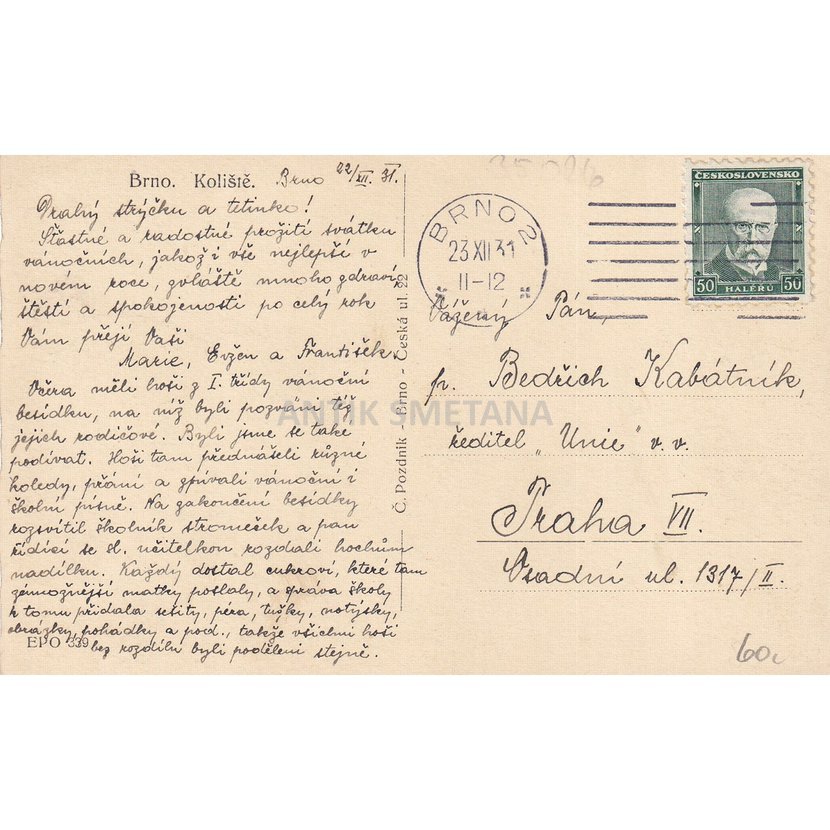 Brno. Koliště. Brno 22/XII. 31.
Drahý strýčku a tetinko!
Šťastné a radostné prožití svátků
vánočních, jakož i vše nejlepší v
novém roce, zvláště mnoho zdraví
štěstí a spokojenosti po celý rok
Vám přejí Vaši
Marie, Evžen a František.
Včera měli hoši z I. třídy vánoční
besídku, na níž byli pozváni též
jejich rodičové. Byli jsme se také
podívat. Hoši tam přednášeli různé
koledy, přání a zpívali vánoční i
školní písně. Na zakončení besídky
rozsvítil školník stromeček a pan
řídící se sl. učitelkou rozdali hochům
nadílku. Každý dostal cukroví, které tam
zámožnější matky poslaly, a správa školy
k tomu přidala sešity, péra, tužky, notýsky,
obrázky, pohádky a pod., takže všichni hoši
bez rozdílu byli poděleni stejně.
EPO 339
Č. Pozdník - Brno - Česká ul. 22
BRNO 2
23 XII 31
11-12
ČESKOSLOVENSKO
50 HALÉŘŮ 50
Vážený Pán,
p. Bedřich Kabátník,
ředitel „Unie" v. v.
Praha VII.
Osadní ul. 1317/II.
60,
ANTIK SMETANA